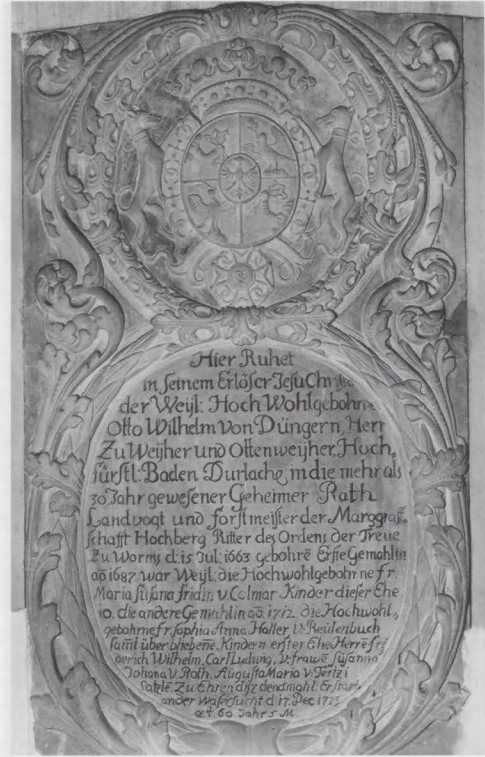 Hier Ruhet
in seinem Erlöser Jesu
der Weyl: Hoch Wohlgebohrne
Otto Wilhelm von Düngern, Herr
Zu Weijher und Ottenweijher, Hoch,
fürstl: Baden Durlach, in die mehr als
30 Jahr gewesener Geheimer Rath
Landvogt und forstmeister der Marggraf
schafft Hochberg Ritter des Ordens der Treue
Zu Worms d: 15 Jul: 1663 gebohrē Erste Gemahlin
aō 1687 war Weyl: die Hochwohlgebohrne fr
Maria susana fridin v. Colmar Kinder dieser Ehe
10. die andere Gemahlin aō. 1712 die Hochwohl,
gebohrne fr. sophia Anna Haller v. Reülenbuch
samt überbliebene Kindern erster Ehe Herre
Wilhelm, Carl Ludwig, v. frawē süsanna
Johana v. Roth, Augusta Maria v.
Zu Ehren diß denckmahl Er starb
an der Wasersucht d 17. Dec 1723
æt. 60 Jahr 5 M